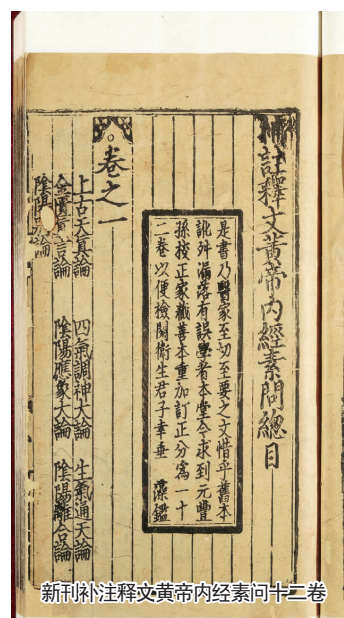 補註釋文黃帝內經素問總目
是書乃醫家至切至要之文惜乎舊本
訛舛漏落有誤學者本堂今求到元豐
孫校正家藏善本重加訂正分爲一十
二卷以便檢閱衛生君子幸垂 藻鑑
卷之一
上古天真論 四氣調神大論 生氣通天論
金匱真言論 陰陽應象大論 陰陽離合論
陰陽別論
新刊补注释文黄帝内经素问十二卷